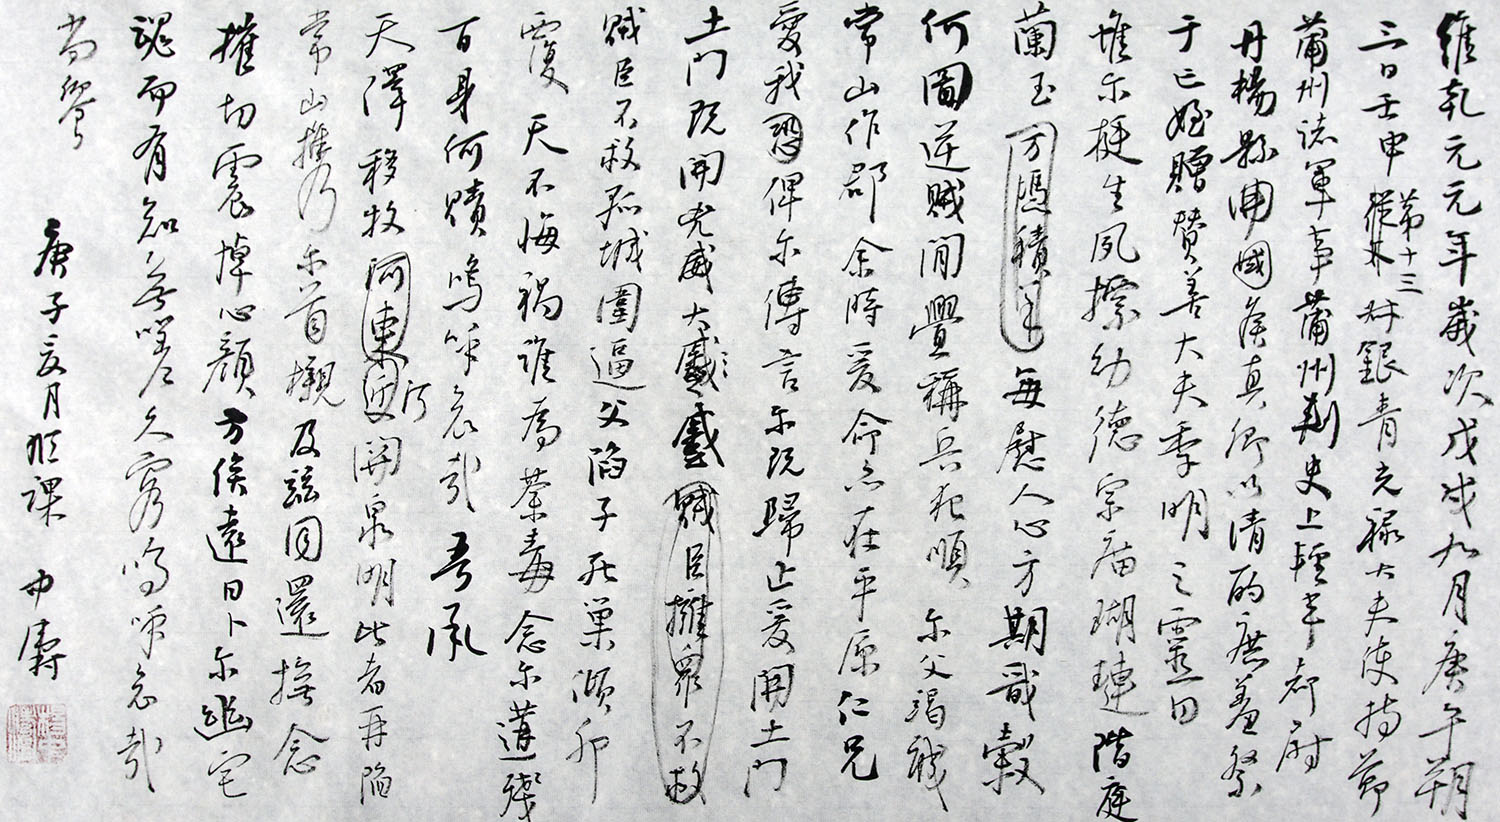 維乾元元年歲次戊戌九月庚午朔
三日壬申第十三從父叔銀青光祿大夫使持節
蒲州諸軍事蒲州刺史上輕車都尉
丹楊縣開國侯真卿以清酌庶羞祭
于亡姪贈贊善大夫季明之靈曰
惟爾挺生夙摽幼德宗廟瑚璉階庭
蘭玉方憑積善每慰人心方期戩穀
何圖逆賊閒釁稱兵犯順爾父竭誠
常山作郡余時受命亦在平原仁兄
愛我恐俾爾傳言爾既歸止爰開土門
土門既開凶威大蹙賊臣擁眾不救
賊臣不救孤城圍逼父陷子死巢傾卵
覆天不悔禍誰為荼毒念爾遘殘
百身何贖嗚呼哀哉吾承
天澤移牧河東近河關泉明比者再陷
常山攜乃爾首櫬及茲同還撫念
摧切震悼心顏方俟遠日卜爾幽宅
魂而有知無嗟久客嗚呼哀哉
尚饗
庚子夏月臨課